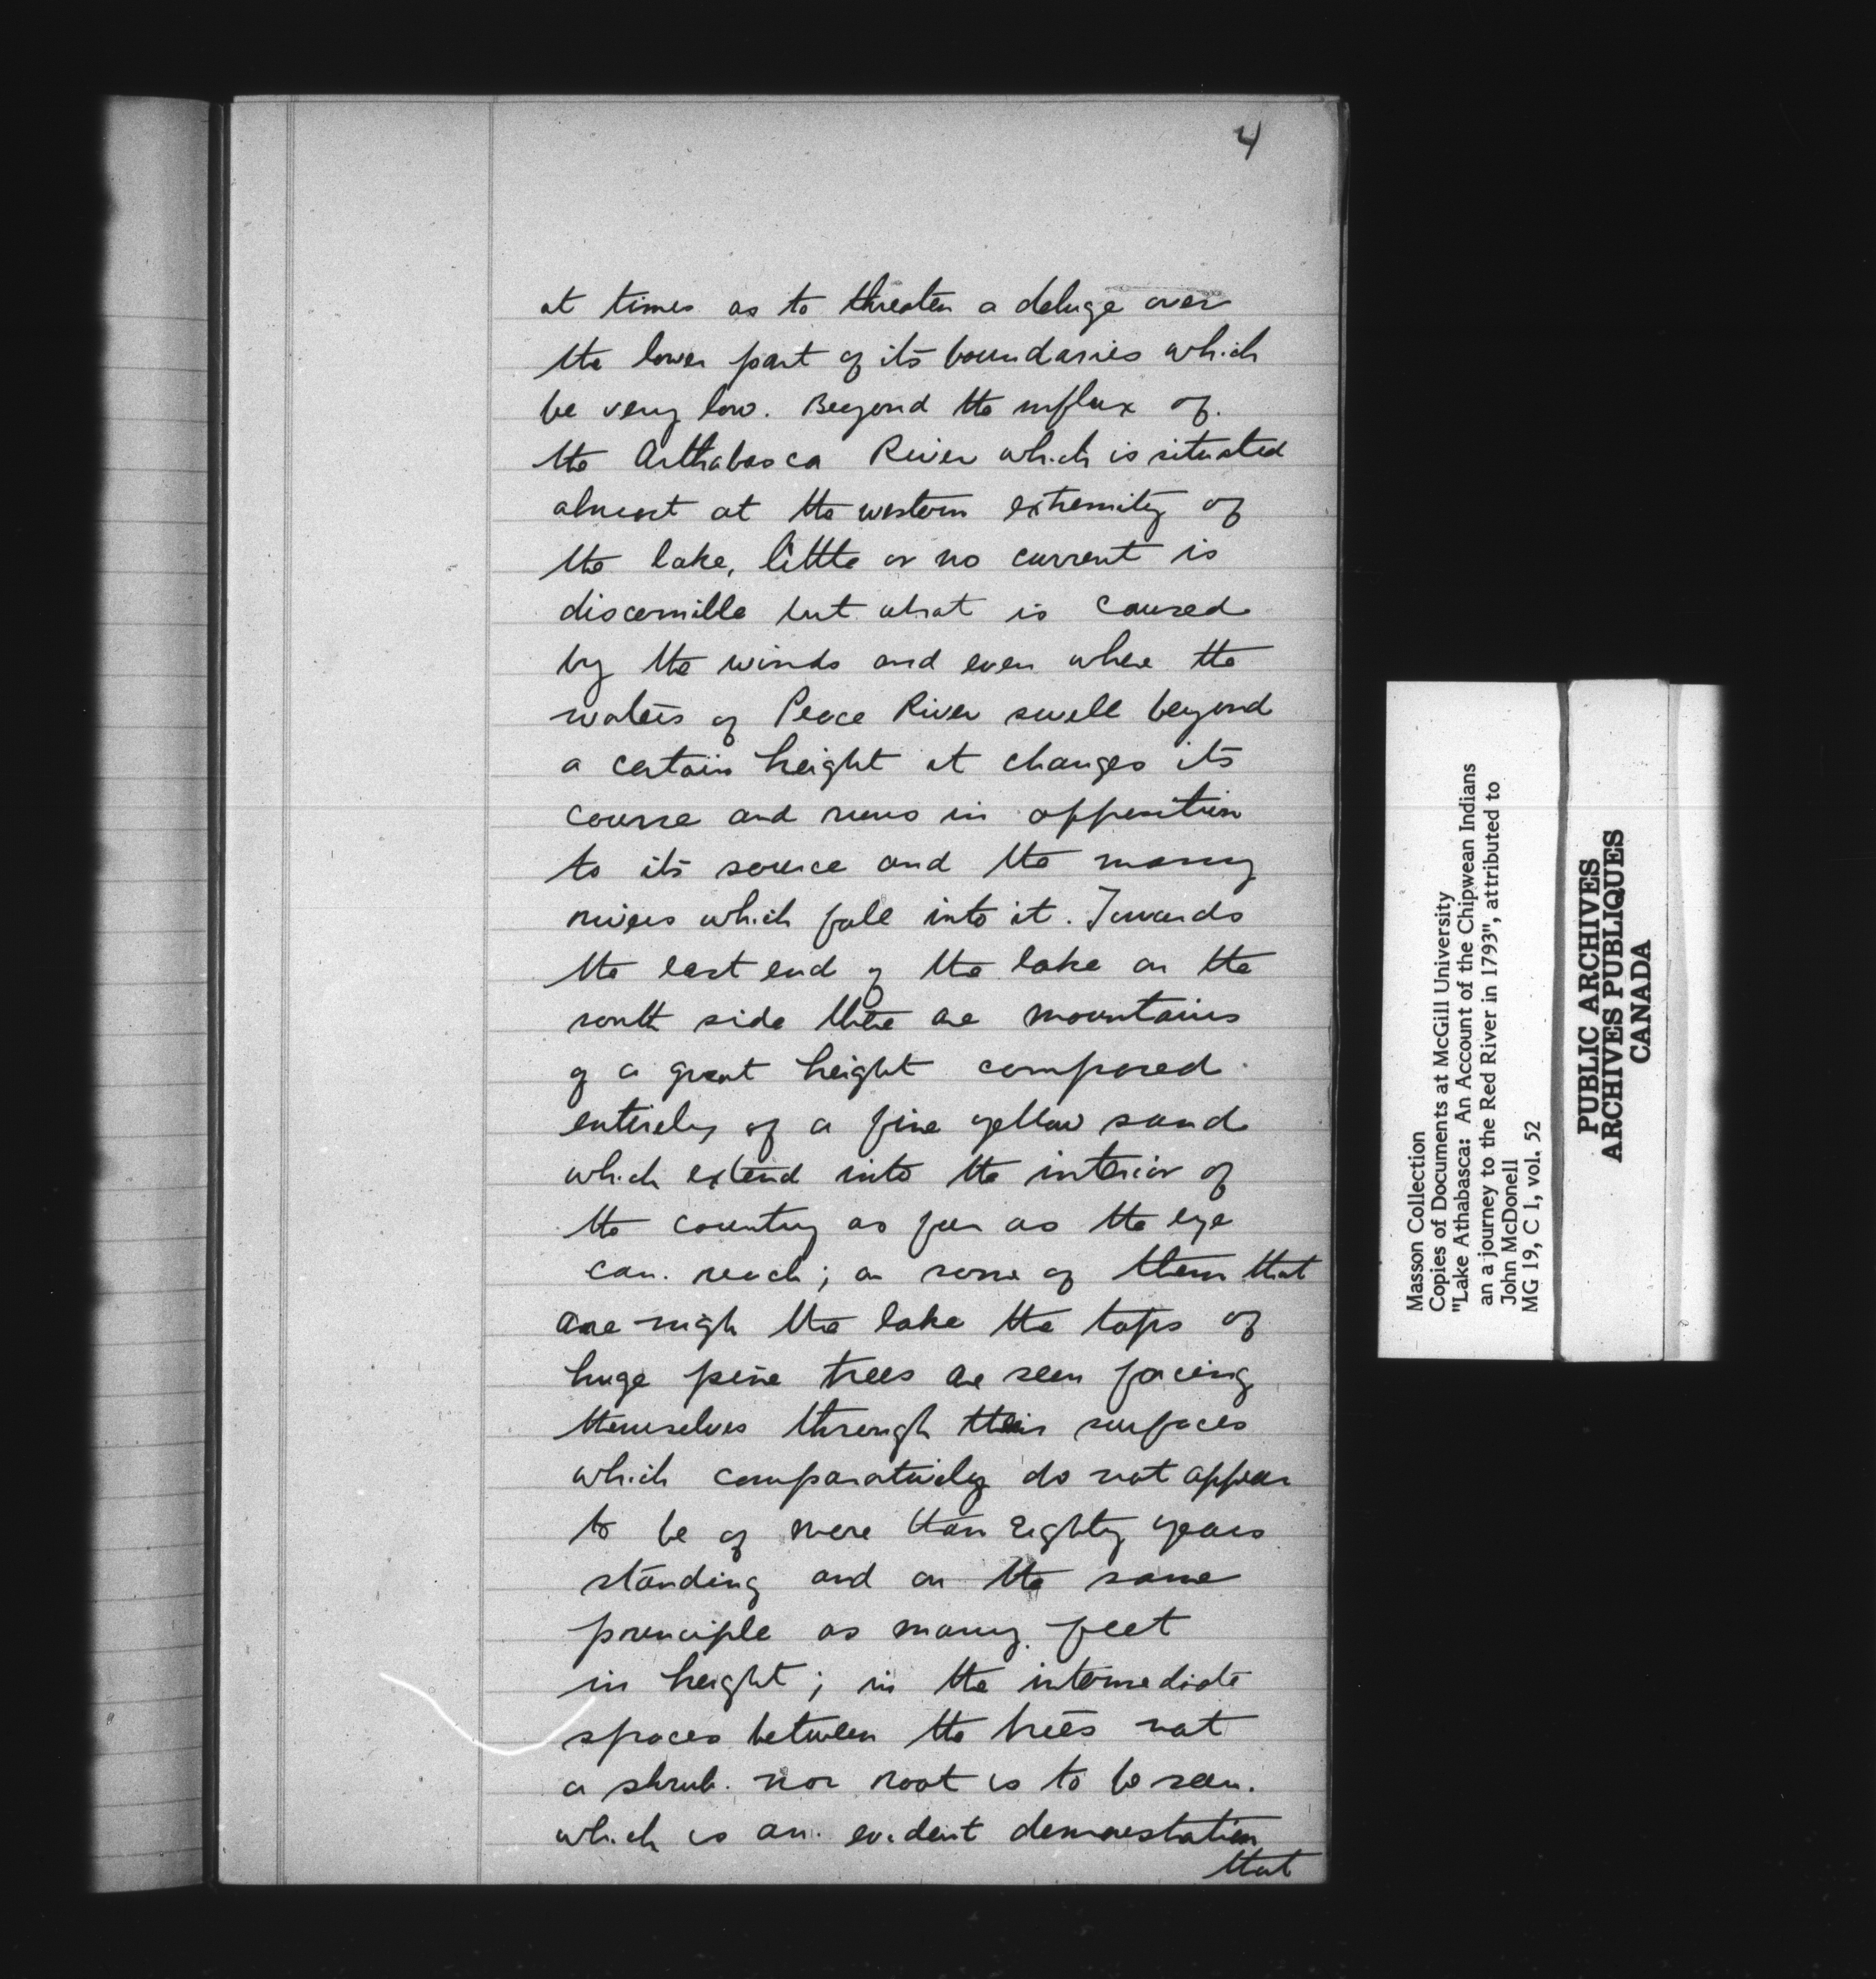 4
at times as to threaten a deluge over
the lower part of its boundaries which
be very low. Beyond the influx of
the Arthabasca River which is situated
almost at the western extremity of
the lake, little or no current is
discernible but what is caused
by the winds and even where the
waters of Peace River swell beyond
a certain height it changes its
course and runs in opposition
to its source and the many
rivers which fall into it. Towards
the east end of the lake on the
south side there are mountains
of a great height composed
entirely of a fine yellow sand
which extend into the interior of
the country as far as the eye
can reach; on some of them that
are nigh the lake the tops of
huge pine trees are seen forcing
themselves through their surfaces
which comparatively do not appear
to be of more than Eighty years
standing and on the same
principle as many feet
in height; in the intermediate
spaces between the trees not
a shrub nor root is to be seen.
which is an evident demonstration
that
Masson Collection
Copies of Documents at McGill University
"Lake Athabasca: An Account of the Chipwean Indians
an a journey to the Red River in 1793", attributed to
John McDonell
MG 19, C 1, vol. 52
PUBLIC ARCHIVES
ARCHIVES PUBLIQUES
CANADA